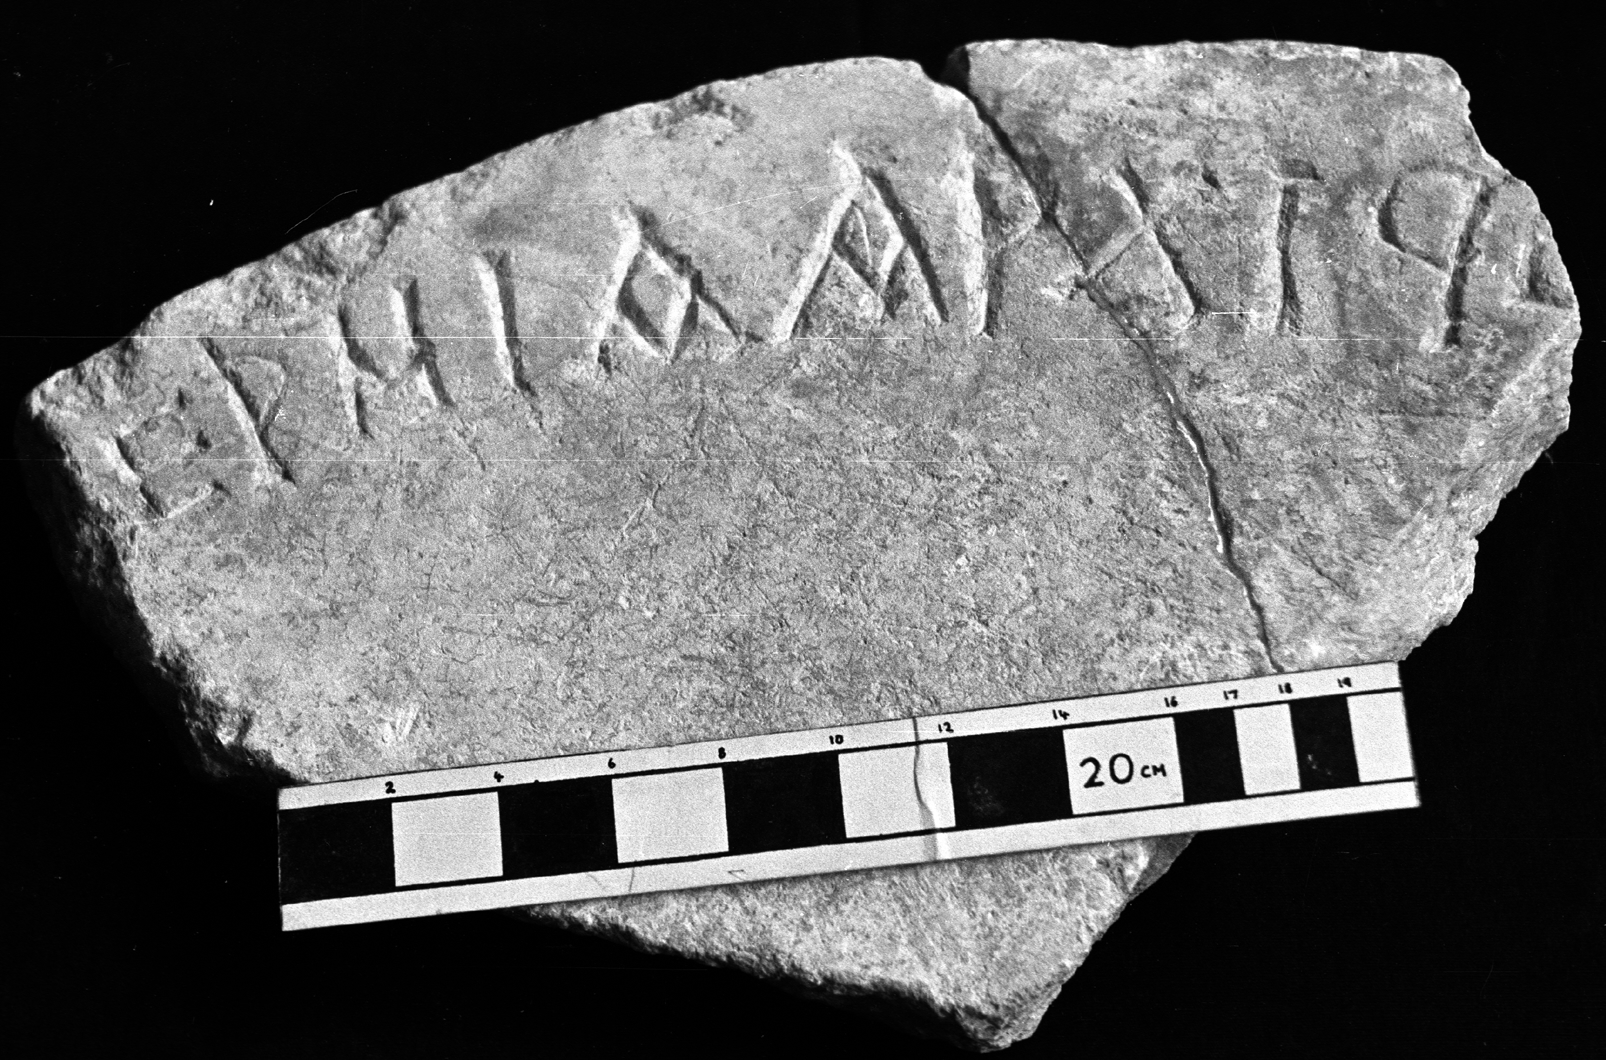 ΕΡΜΙΑΑΡΛΤ
2 4 6 8 10 12 14 16 17 18 19
20 CM